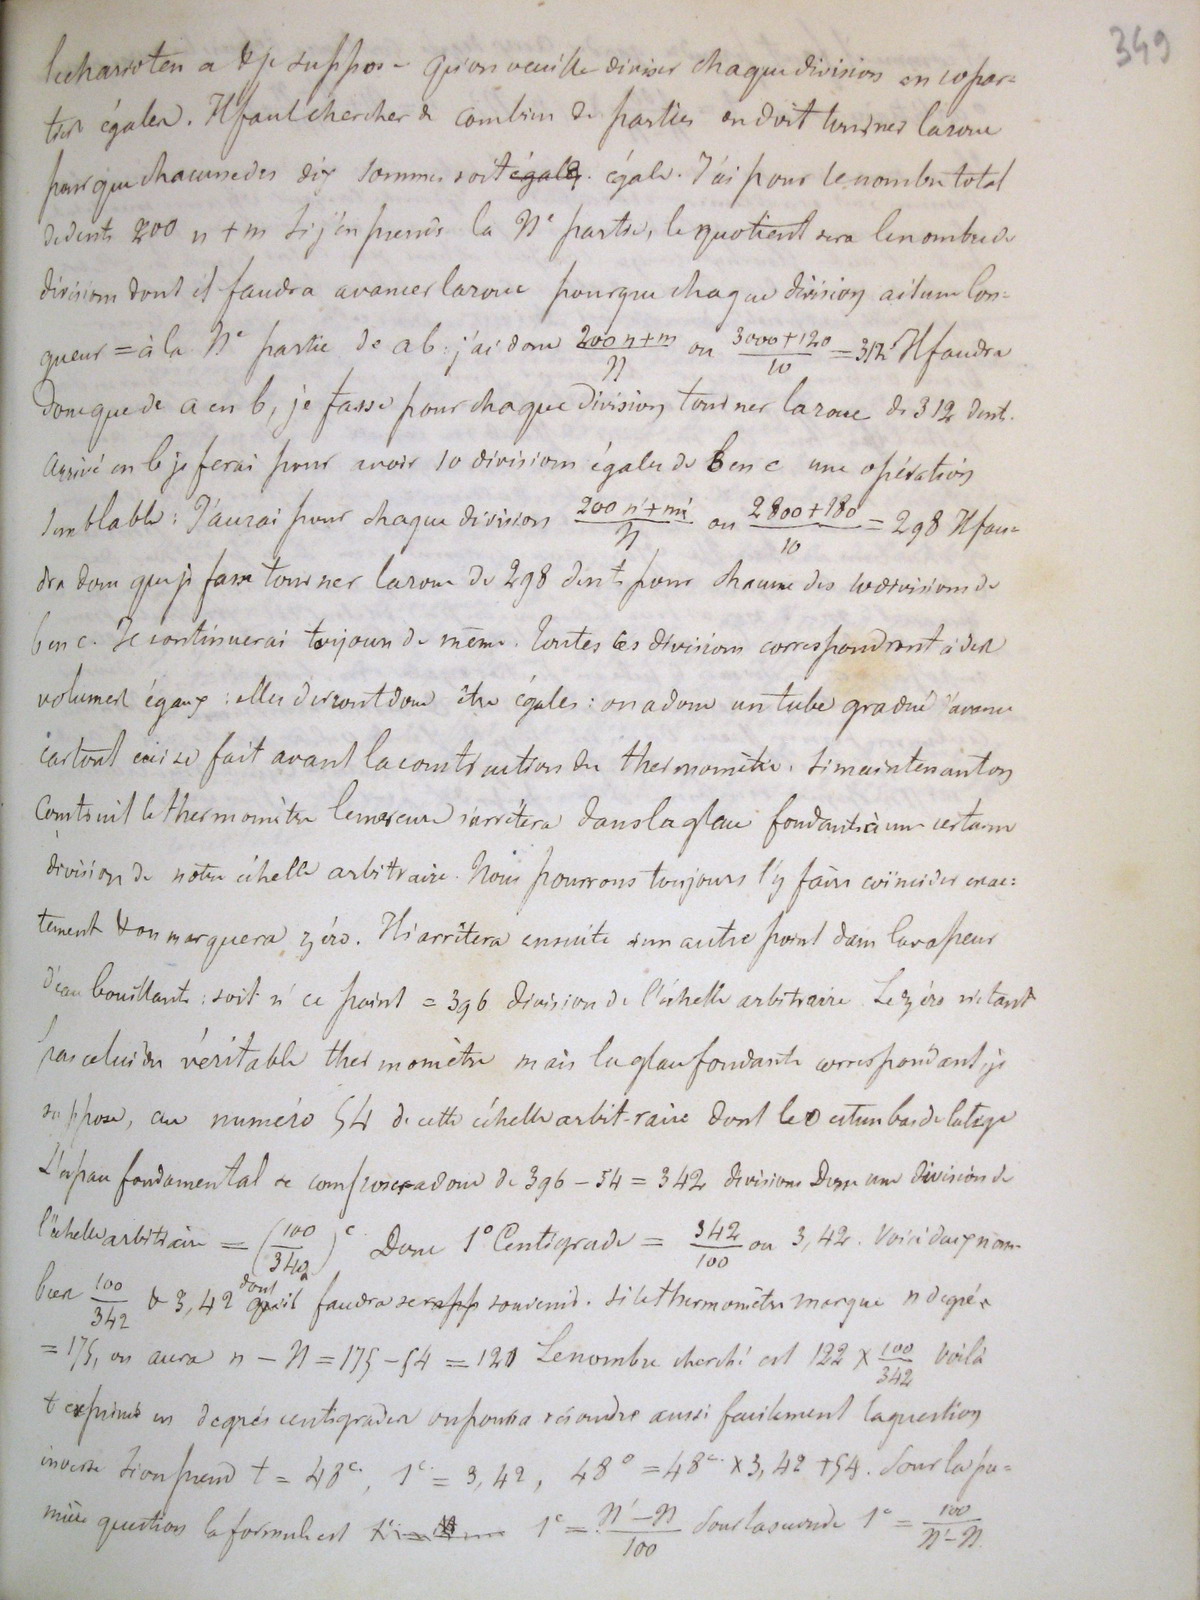 349
le chariot en a & je suppose qu'on veuille diviser chaque division en 10 par=
ties égales. Il faut chercher de combien de parties on doit tourner la roue
pour que chacune des dix sommes soit égale. égale. J'ai pour le nombre total
de dents 200 n + m Si j'en prends la N^e partie, le quotient sera le nombre de
divisions dont il faudra avancer la roue pour que chaque division ait une lon=
gueur = à la N^e partie de ab : j'ai donc (200 n + m)/N ou (3000 + 120)/10 = 312 Il faudra
donc que de a en b, je fasse pour chaque division tourner la roue de 312 dents.
Arrivé en b je ferai pour avoir 10 divisions égales de b en c une opération
semblable : J'aurai pour chaque division (200 n' + m')/N ou (2800 + 180)/10 = 298 Il fau=
dra donc que je fasse tourner la roue de 298 dents pour chacune des 10 divisions de
b en c. Je continuerai toujours de même. Toutes ces divisions correspondront à des
volumes égaux : elles devront donc être égales : on a donc un tube gradué d'avance
car tout ceci se fait avant la construction du thermomètre. Si maintenant on
construit le thermomètre le mercure s'arrêtera dans la glace fondante à une certaine
division de notre échelle arbitraire. Nous pourrons toujours l'y faire coïncider exac=
tement & on marquera zéro. Il s'arrêtera ensuite à un autre point dans la vapeur
d'eau bouillante : soit n' ce point = 396 division de l'échelle arbitraire. Le zéro n'étant
pas celui du véritable thermomètre mais la glace fondante correspondant, je
suppose, au numéro 54 de cette échelle arbitraire dont le 0 est au bas de la tige
L'espace fondamental se composera donc de 396 - 54 = 342 divisions Donc une division de
l'échelle arbitraire = (100/342)^c Donc 1° Centigrade = 342/100 ou 3,42. Voici deux nom-
bres 100/342 & 3,42 dont qu'il faudra se rapp souvenir. Si le thermomètre marque n degrés
= 175, on aura n - N = 175 - 54 = 121 Le nombre cherché est 122 × 100/342 Voilà
t exprimé en degrés centigrades on pourra résoudre aussi facilement la question
inverse Si on prend t = 48^c, 1^c = 3,42, 48° = 48^c × 3,42 + 54. Pour la pre=
mière question la formule est 1^c = (N' - N)/100 Pour la seconde 1^c = 100/(N' - N)